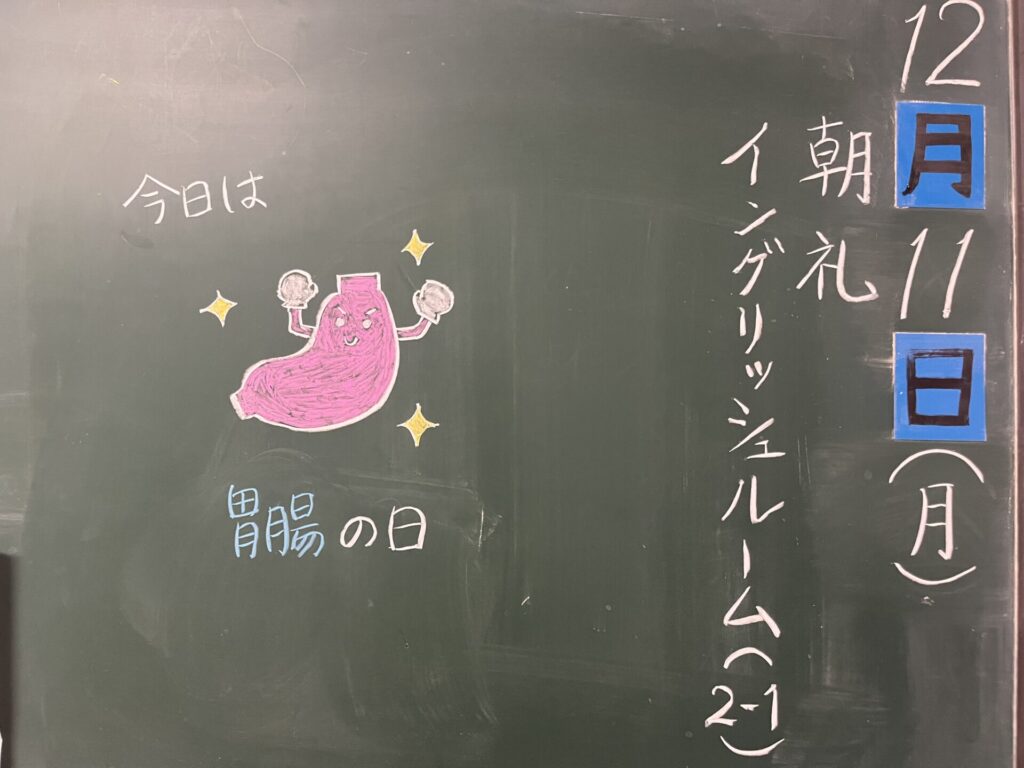 12月11日(月)
朝礼
イングリッシュルーム(2-1)
今日は
胃腸の日